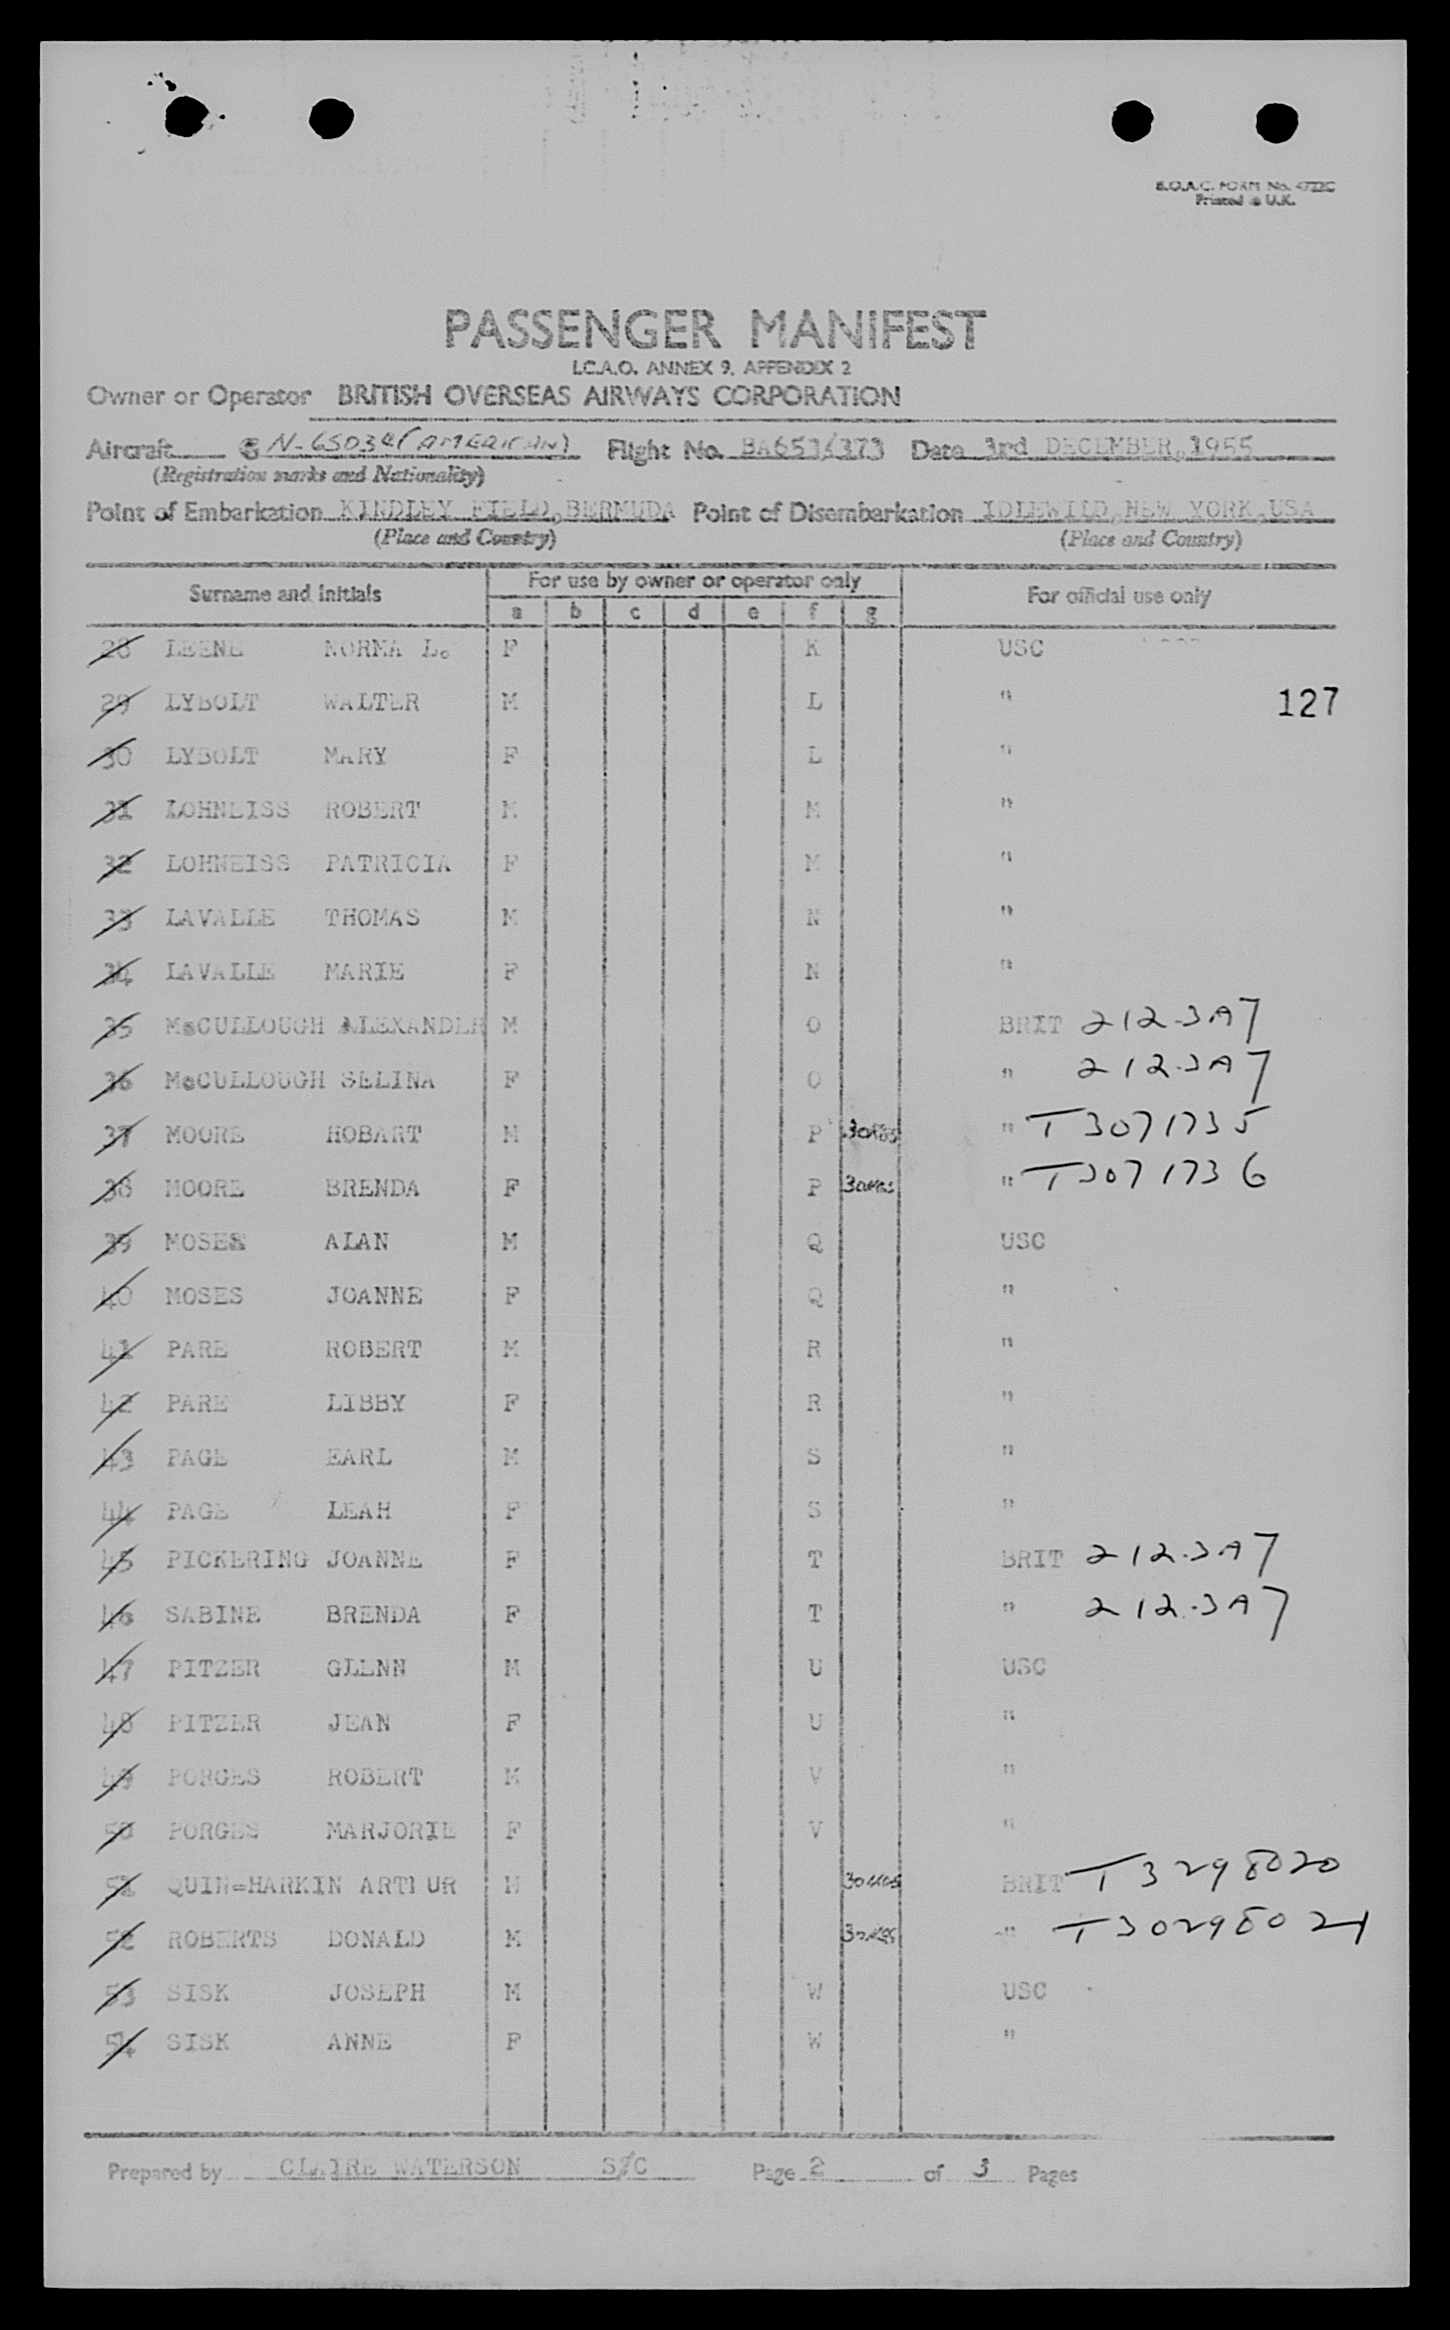 B.O.A.C. FORM No. 4722C
Printed in U.K.
PASSENGER MANIFEST
I.C.A.O. ANNEX 9, APPENDIX 2
Owner or Operator BRITISH OVERSEAS AIRWAYS CORPORATION
Aircraft N-65034 (AMERICAN) Flight No. BA651/373 Date 3rd DECEMBER, 1955
(Registration marks and Nationality)
Point of Embarkation KINDLEY FIELD, BERMUDA Point of Disembarkation IDLEWILD, NEW YORK, USA
(Place and Country) (Place and Country)
Surname and initials For use by owner or operator only For official use only
a b c d e f g
28 LEENE NORMA L. F K USC
29 LYBOLT WALTER M L " 127
30 LYBOLT MARY F L "
31 LOHNEISS ROBERT M M "
32 LOHNEISS PATRICIA F M "
33 LAVALLE THOMAS M N "
34 LAVALLE MARIE F N "
35 McCULLOUGH ALEXANDER M O BRIT 212.3A7
36 McCULLOUGH SELINA F O " 212.3A7
37 MOORE HOBART M P " T3071735
38 MOORE BRENDA F P " T3071736
39 MOSES ALAN M Q USC
40 MOSES JOANNE F Q "
41 PARE ROBERT M R "
42 PARE LIBBY F R "
43 PAGE EARL M S "
44 PAGE LEAH F S "
45 PICKERING JOANNE F T BRIT 212.3A7
46 SABINE BRENDA F T " 212.3A7
47 PITZER GLENN M U USC
48 PITZER JEAN F U "
49 PORGES ROBERT M V "
50 PORGES MARJORIE F V "
51 QUIN=HARKIN ARTHUR M BRIT T3298020
52 ROBERTS DONALD M " T30298021
53 SISK JOSEPH M W USC
54 SISK ANNE F W "
Prepared by CLAIRE WATERSON S/C Page 2 of 3 Pages